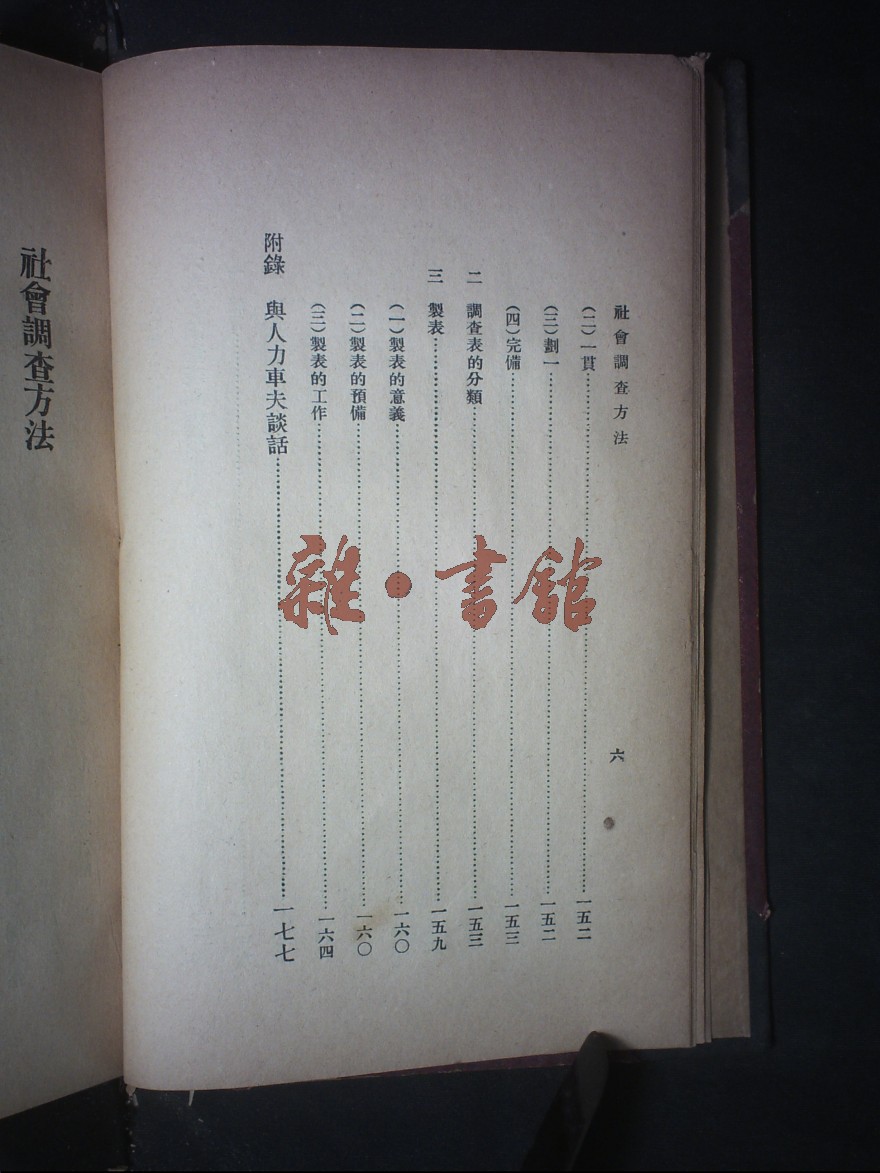 社會調查方法
六
(二)一貫……一五二
(三)劃一……一五二
(四)完備……一五三
二 調查表的分類……一五三
三 製表……一五九
(一)製表的意義……一六〇
(二)製表的預備……一六〇
(三)製表的工作……一六四
附錄 與人力車夫談話……一七七
社會調查方法
雜·書館